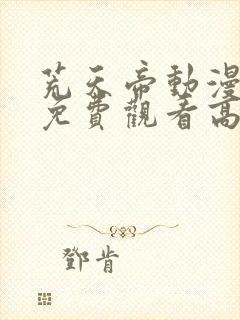 荒天帝動漫
免費觀看高
鄧肯